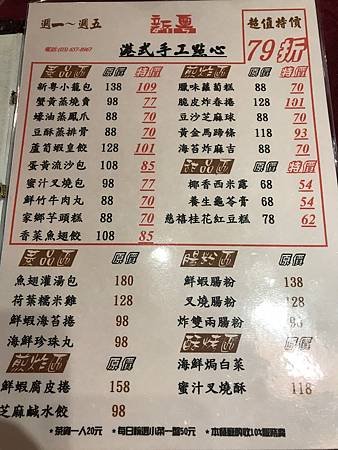 週一~週五
新粵
超值特價
電話:(03)-657-8967
港式手工點心
79折
蒸品區 原價 特價
新粵小籠包 138 109
蟹黃蒸燒賣 98 77
蠔油蒸鳳爪 88 70
豆酥蒸排骨 88 70
蘆筍蝦皇餃 128 101
蛋黃流沙包 108 85
蜜汁叉燒包 98 77
鮮竹牛肉丸 88 70
家鄉芋頭糕 88 70
香菜魚翅餃 108 85
原價 特價
臘味蘿蔔糕 88 70
脆皮炸春捲 128 101
豆沙芝麻球 88 70
黃金馬蹄條 118 93
海苔炸麻吉 88 70
原價 特價
椰香西米露 68 54
養生龜苓膏 68 54
慈禧桂花紅豆糕 78 62
蒸品區 原價
魚翅灌湯包 180
荷葉糯米雞 128
鮮蝦海苔捲 98
海鮮珍珠丸 98
煎炸區 原價
鮮蝦腐皮捲 158
芝麻鹹水餃 98
腸粉區 原價
鮮蝦腸粉 138
叉燒腸粉 128
炸雙兩腸粉 98
酥烤區 原價
海鮮焗白菜 98
蜜汁叉燒酥 118
*茶資一人20元 *每日精選小菜一盤50元 *本餐廳酌收10%服務費